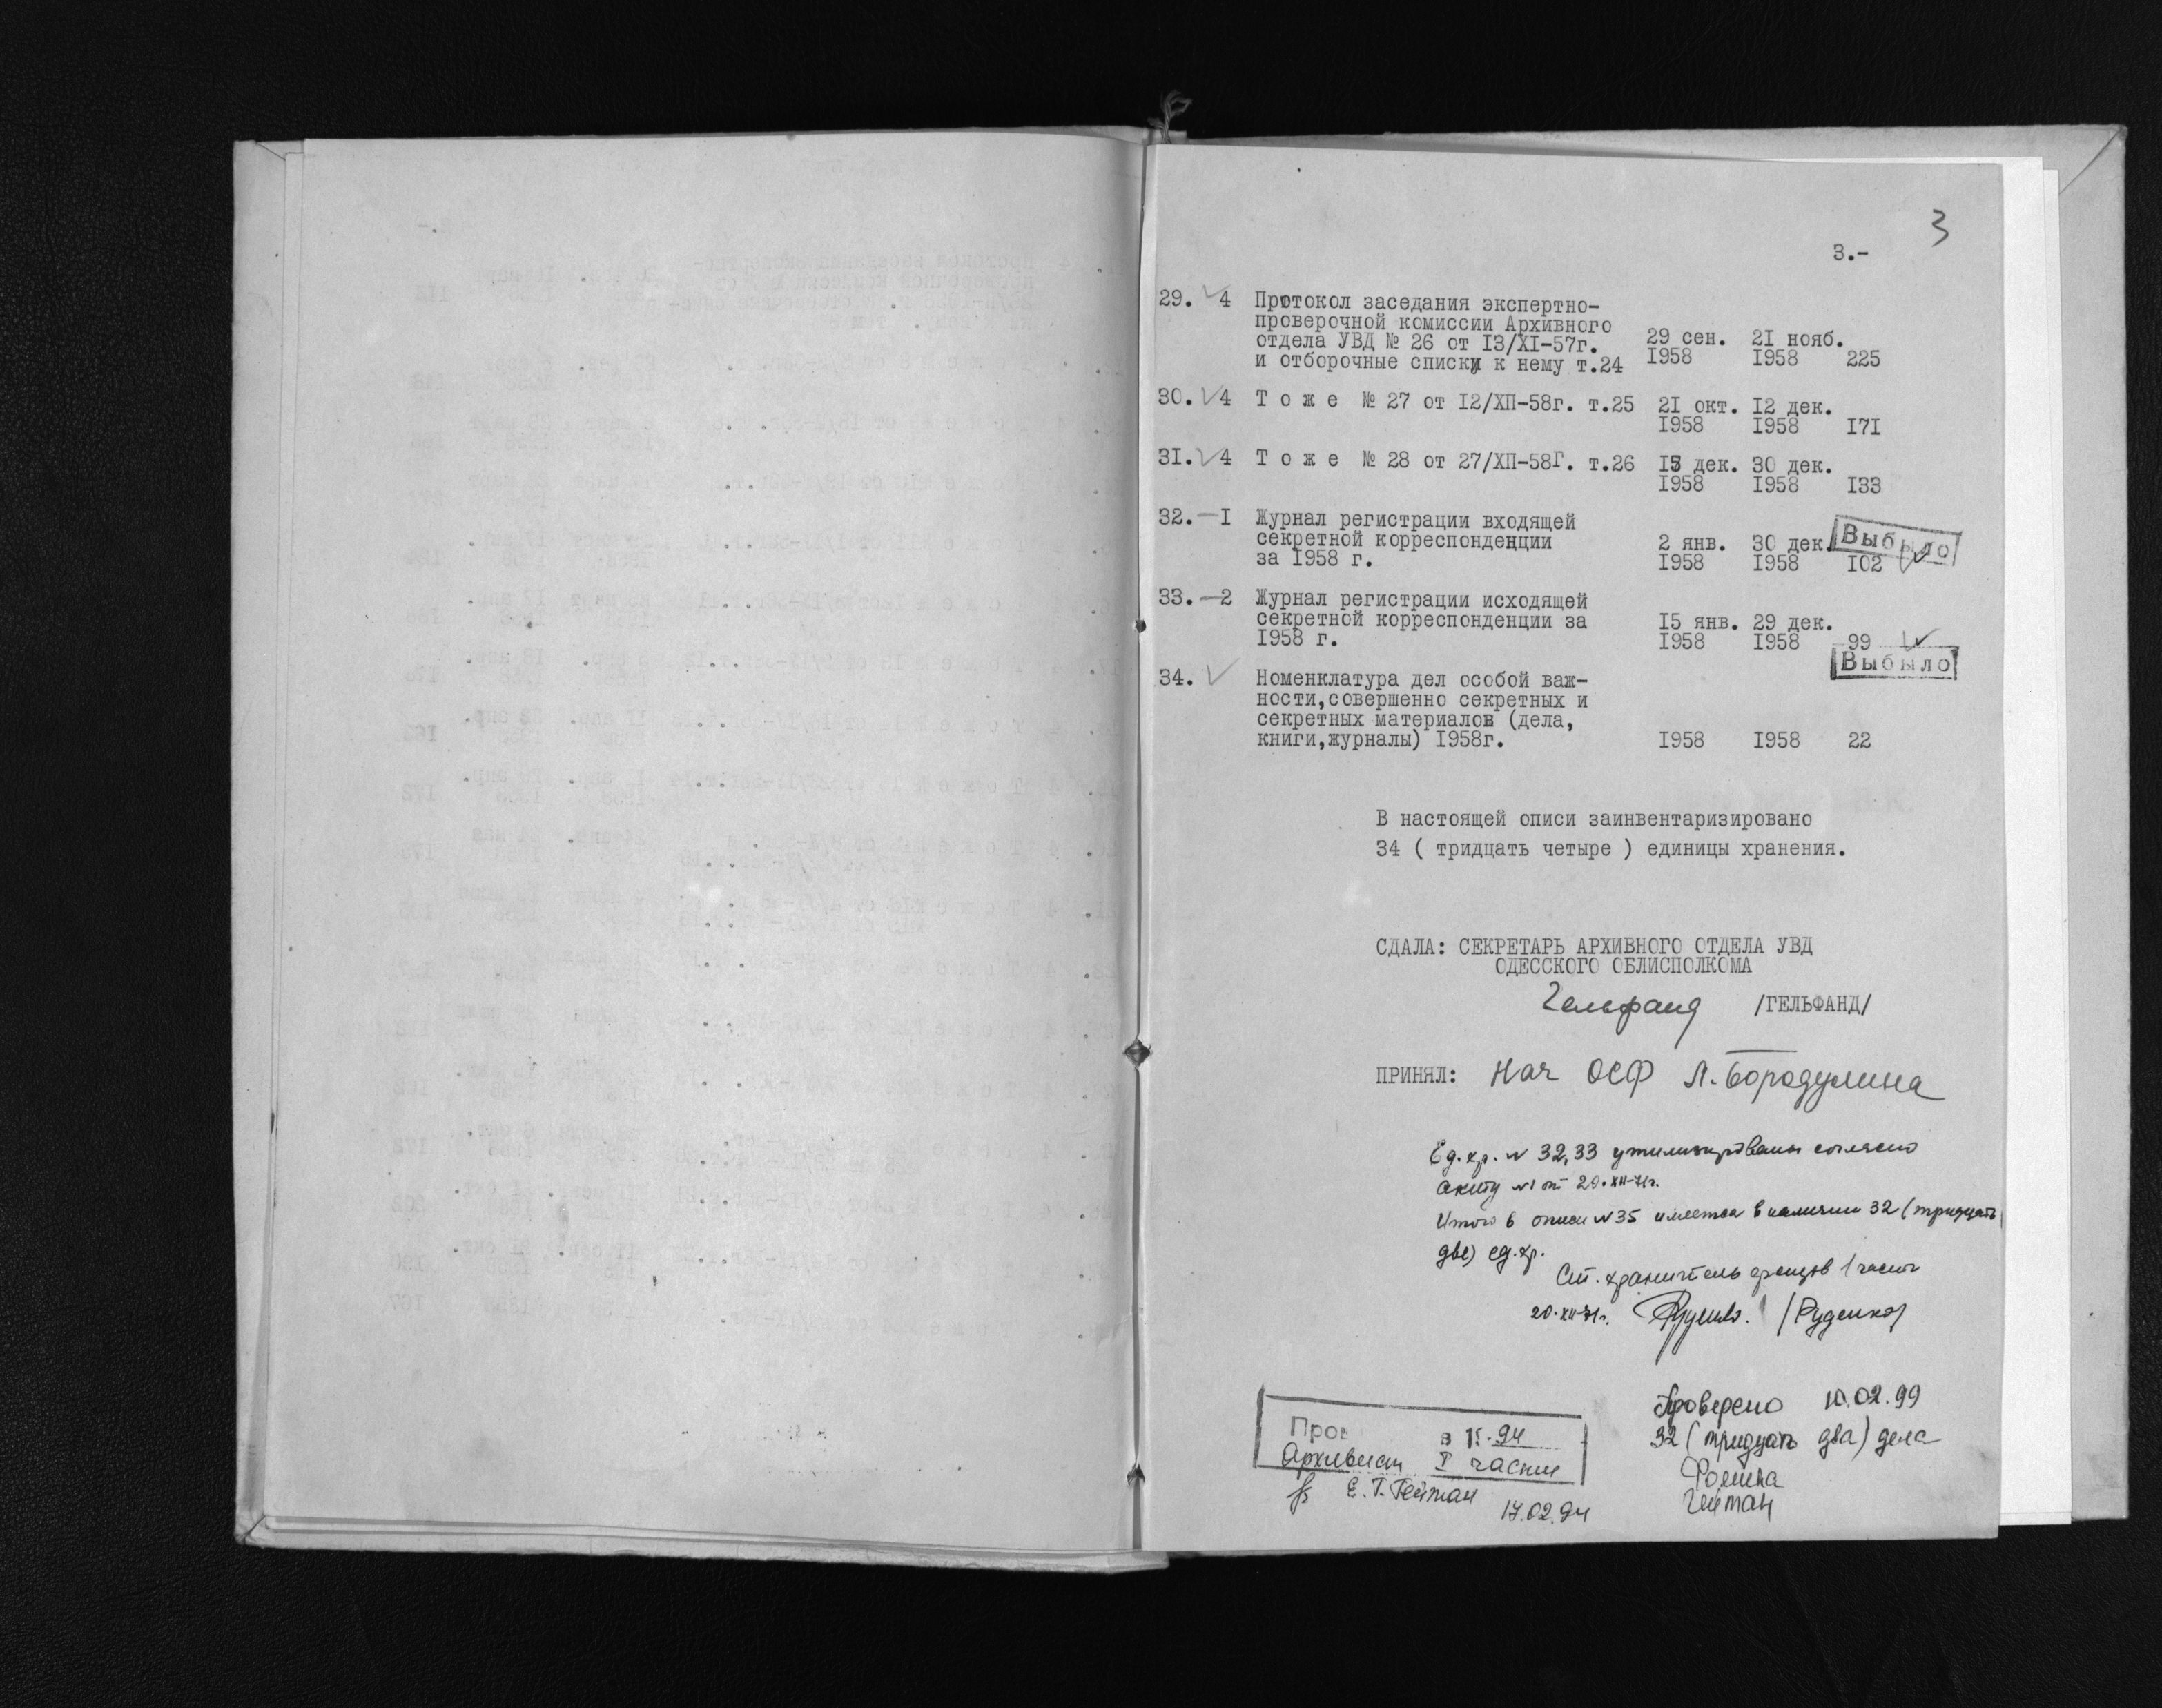 3
3.-
29. 4 Протокол заседания экспертно-
проверочной комиссии Архивного
отдела УВД № 26 от I3/XI-57г. 29 сен. 2I нояб.
и отборочные списки к нему т.24 I958 I958 225
30. 4 Т о ж е № 27 от I2/ХП-58г. т.25 2I окт. I2 дек.
I958 I958 I7I
3I. 4 Т о ж е № 28 от 27/ХП-58Г. т.26 I3 дек. 30 дек.
I958 I958 I33
32.-I Журнал регистрации входящей
секретной корреспонденции 2 янв. 30 дек. Выбыло
за I958 г. I958 I958 I02
33.-2 Журнал регистрации исходящей
секретной корреспонденции за I5 янв. 29 дек.
I958 г. I958 I958 99
Выбыло
34. Номенклатура дел особой важ-
ности,совершенно секретных и
секретных материалов (дела,
книги,журналы) I958г. I958 I958 22
В настоящей описи заинвентаризировано
34 ( тридцать четыре ) единицы хранения.
СДАЛА: СЕКРЕТАРЬ АРХИВНОГО ОТДЕЛА УВД
ОДЕССКОГО ОБЛИСПОЛКОМА
Гельфанд /ГЕЛЬФАНД/
ПРИНЯЛ: Нач ОСФ Л. Бородулина
Ед. хр. № 32,33 утилизированы согласно
акту №1 от 20.XII-71г.
Итого в описи №35 имеется в наличии 32 (тридцать
две) ед. хр.
Ст. хранитель фондов 1 части
20.XII-71г. /Руденко/
Проверено 10.02.99
32 (тридцать два) дела
Фомина
Гейтан
Пров в 94
Архивист I части
Е. Т. Гейтан
17.02.94